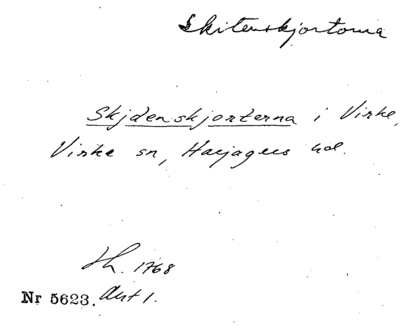 Skitenskjortorna
Skjdenskjorterna i Virke,
Virke sn, Harjagers hd.
Lh. 1768
Nr 5623. Akt 1.